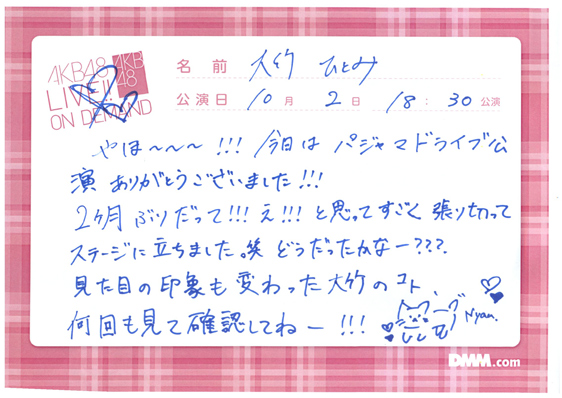 AKB48 AKB48
LIVE!!
ON DEMAND
名前 大竹 ひとみ
公演日 10月 2日 18:30公演
やほ〜〜〜!!! 今日は パジャマドライブ公
演 ありがとうございました!!!
2ヶ月ぶりだって!!! え!!! と思ってすごく張り切って
ステージに立ちました。笑 どうだったかなー???
見た目の印象も変わった大竹のコト、
何回も見て確認してねー!!!
Nyan.
DMM.com